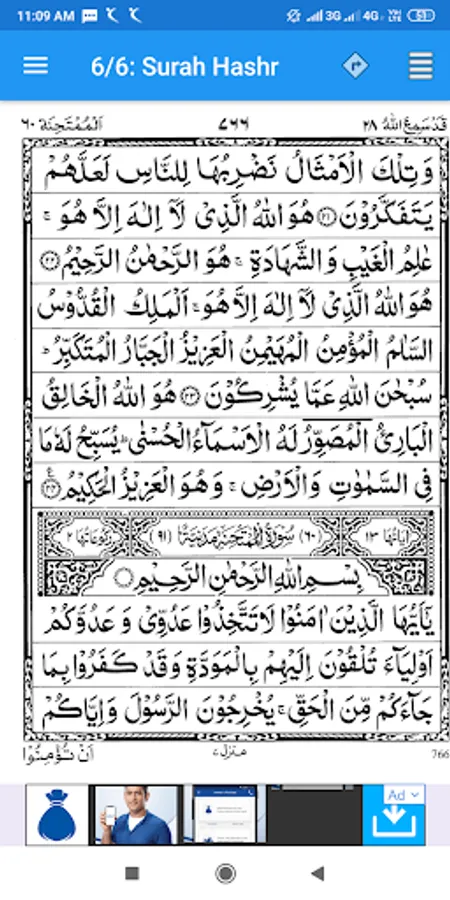 11:09 AM 3G 4G VoLTE 51
6/6: Surah Hashr
قَدْسَمِعَ اللّٰهُ ٢٨ ٧٦٦ اَلْمُمْتَحِنَة ٦٠
وَتِلْكَ الْاَمْثَالُ نَضْرِبُهَا لِلنَّاسِ لَعَلَّهُمْ
يَتَفَكَّرُوْنَ ﴿٢١﴾ هُوَ اللّٰهُ الَّذِىْ لَآ اِلٰهَ اِلَّا هُوَ ۚ
عٰلِمُ الْغَيْبِ وَالشَّهَادَةِ ۚ هُوَ الرَّحْمٰنُ الرَّحِيْمُ ﴿٢٢﴾
هُوَ اللّٰهُ الَّذِىْ لَآ اِلٰهَ اِلَّا هُوَ ۚ اَلْمَلِكُ الْقُدُّوْسُ
السَّلٰمُ الْمُؤْمِنُ الْمُهَيْمِنُ الْعَزِيْزُ الْجَبَّارُ الْمُتَكَبِّرُ ؕ
سُبْحٰنَ اللّٰهِ عَمَّا يُشْرِكُوْنَ ﴿٢٣﴾ هُوَ اللّٰهُ الْخَالِقُ
الْبَارِئُ الْمُصَوِّرُ لَهُ الْاَسْمَآءُ الْحُسْنٰى ؕ يُسَبِّحُ لَهٗ مَا
فِى السَّمٰوٰتِ وَالْاَرْضِ ۚ وَهُوَ الْعَزِيْزُ الْحَكِيْمُ ﴿٢٤﴾
اٰيَاتُهَا ١٣ (٦٠) سُوْرَةُ الْمُمْتَحِنَةِ مَدَنِيَّةٌ (٩١) رُكُوْعَاتُهَا ٢
بِسْمِ اللّٰهِ الرَّحْمٰنِ الرَّحِيْمِ
يٰٓاَيُّهَا الَّذِيْنَ اٰمَنُوْا لَا تَتَّخِذُوْا عَدُوِّىْ وَعَدُوَّكُمْ
اَوْلِيَآءَ تُلْقُوْنَ اِلَيْهِمْ بِالْمَوَدَّةِ وَقَدْ كَفَرُوْا بِمَا
جَآءَكُمْ مِّنَ الْحَقِّ ۚ يُخْرِجُوْنَ الرَّسُوْلَ وَاِيَّاكُمْ
اَنْ تُؤْمِنُوْا منزل ٧ 766
Ad